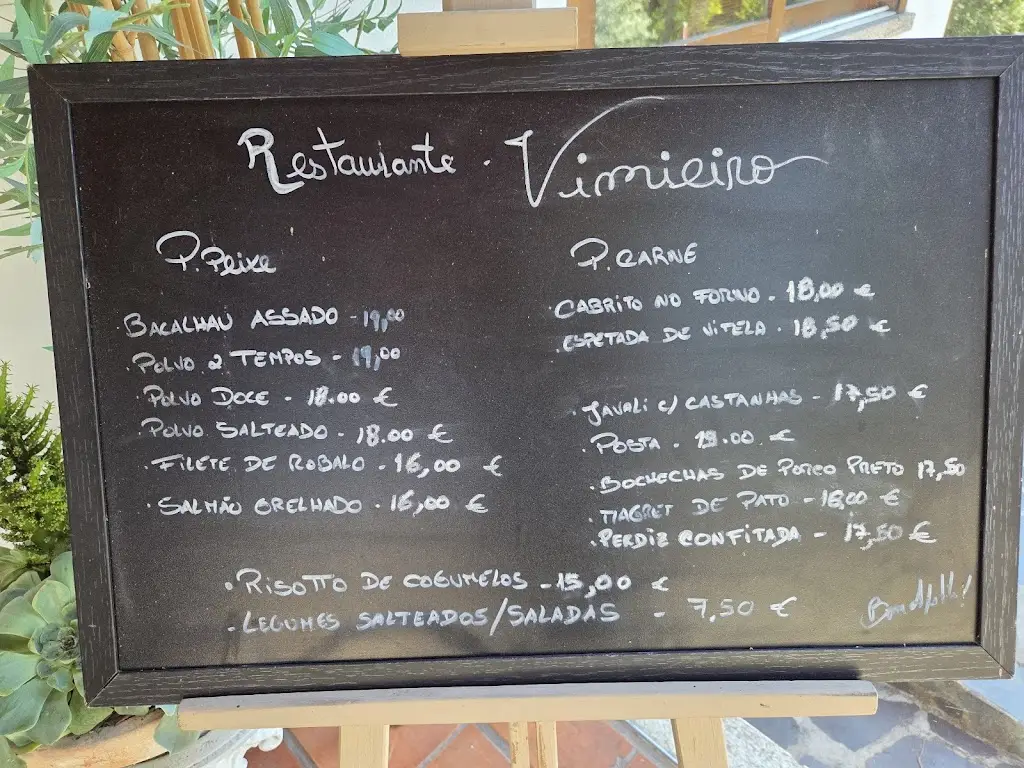 Restaurante . Vimieiro
P. Peixe
BACALHAU ASSADO - 19,00
. POLVO 2 TEMPOS - 19,00
. POLVO DOCE - 18.00 €
. POLVO SALTEADO - 18.00 €
. FILETE DE ROBALO - 16,00 €
. SALMÃO GRELHADO - 16,00 €
P. CARNE
. CABRITO NO FORNO - 18,00 €
. ESPETADA DE VITELA - 18,50 €
. JAVALI C/ CASTANHAS - 17,50 €
. POSTA - €
. BOCHECHAS DE PORCO PRETO 17,50
. MAGRET DE PATO - 18,00 €
. PERDIZ CONFITADA - 17,50 €
. RISOTTO DE COGUMELOS - 15,00 €
. LEGUMES SALTEADOS/SALADAS - 7,50 €